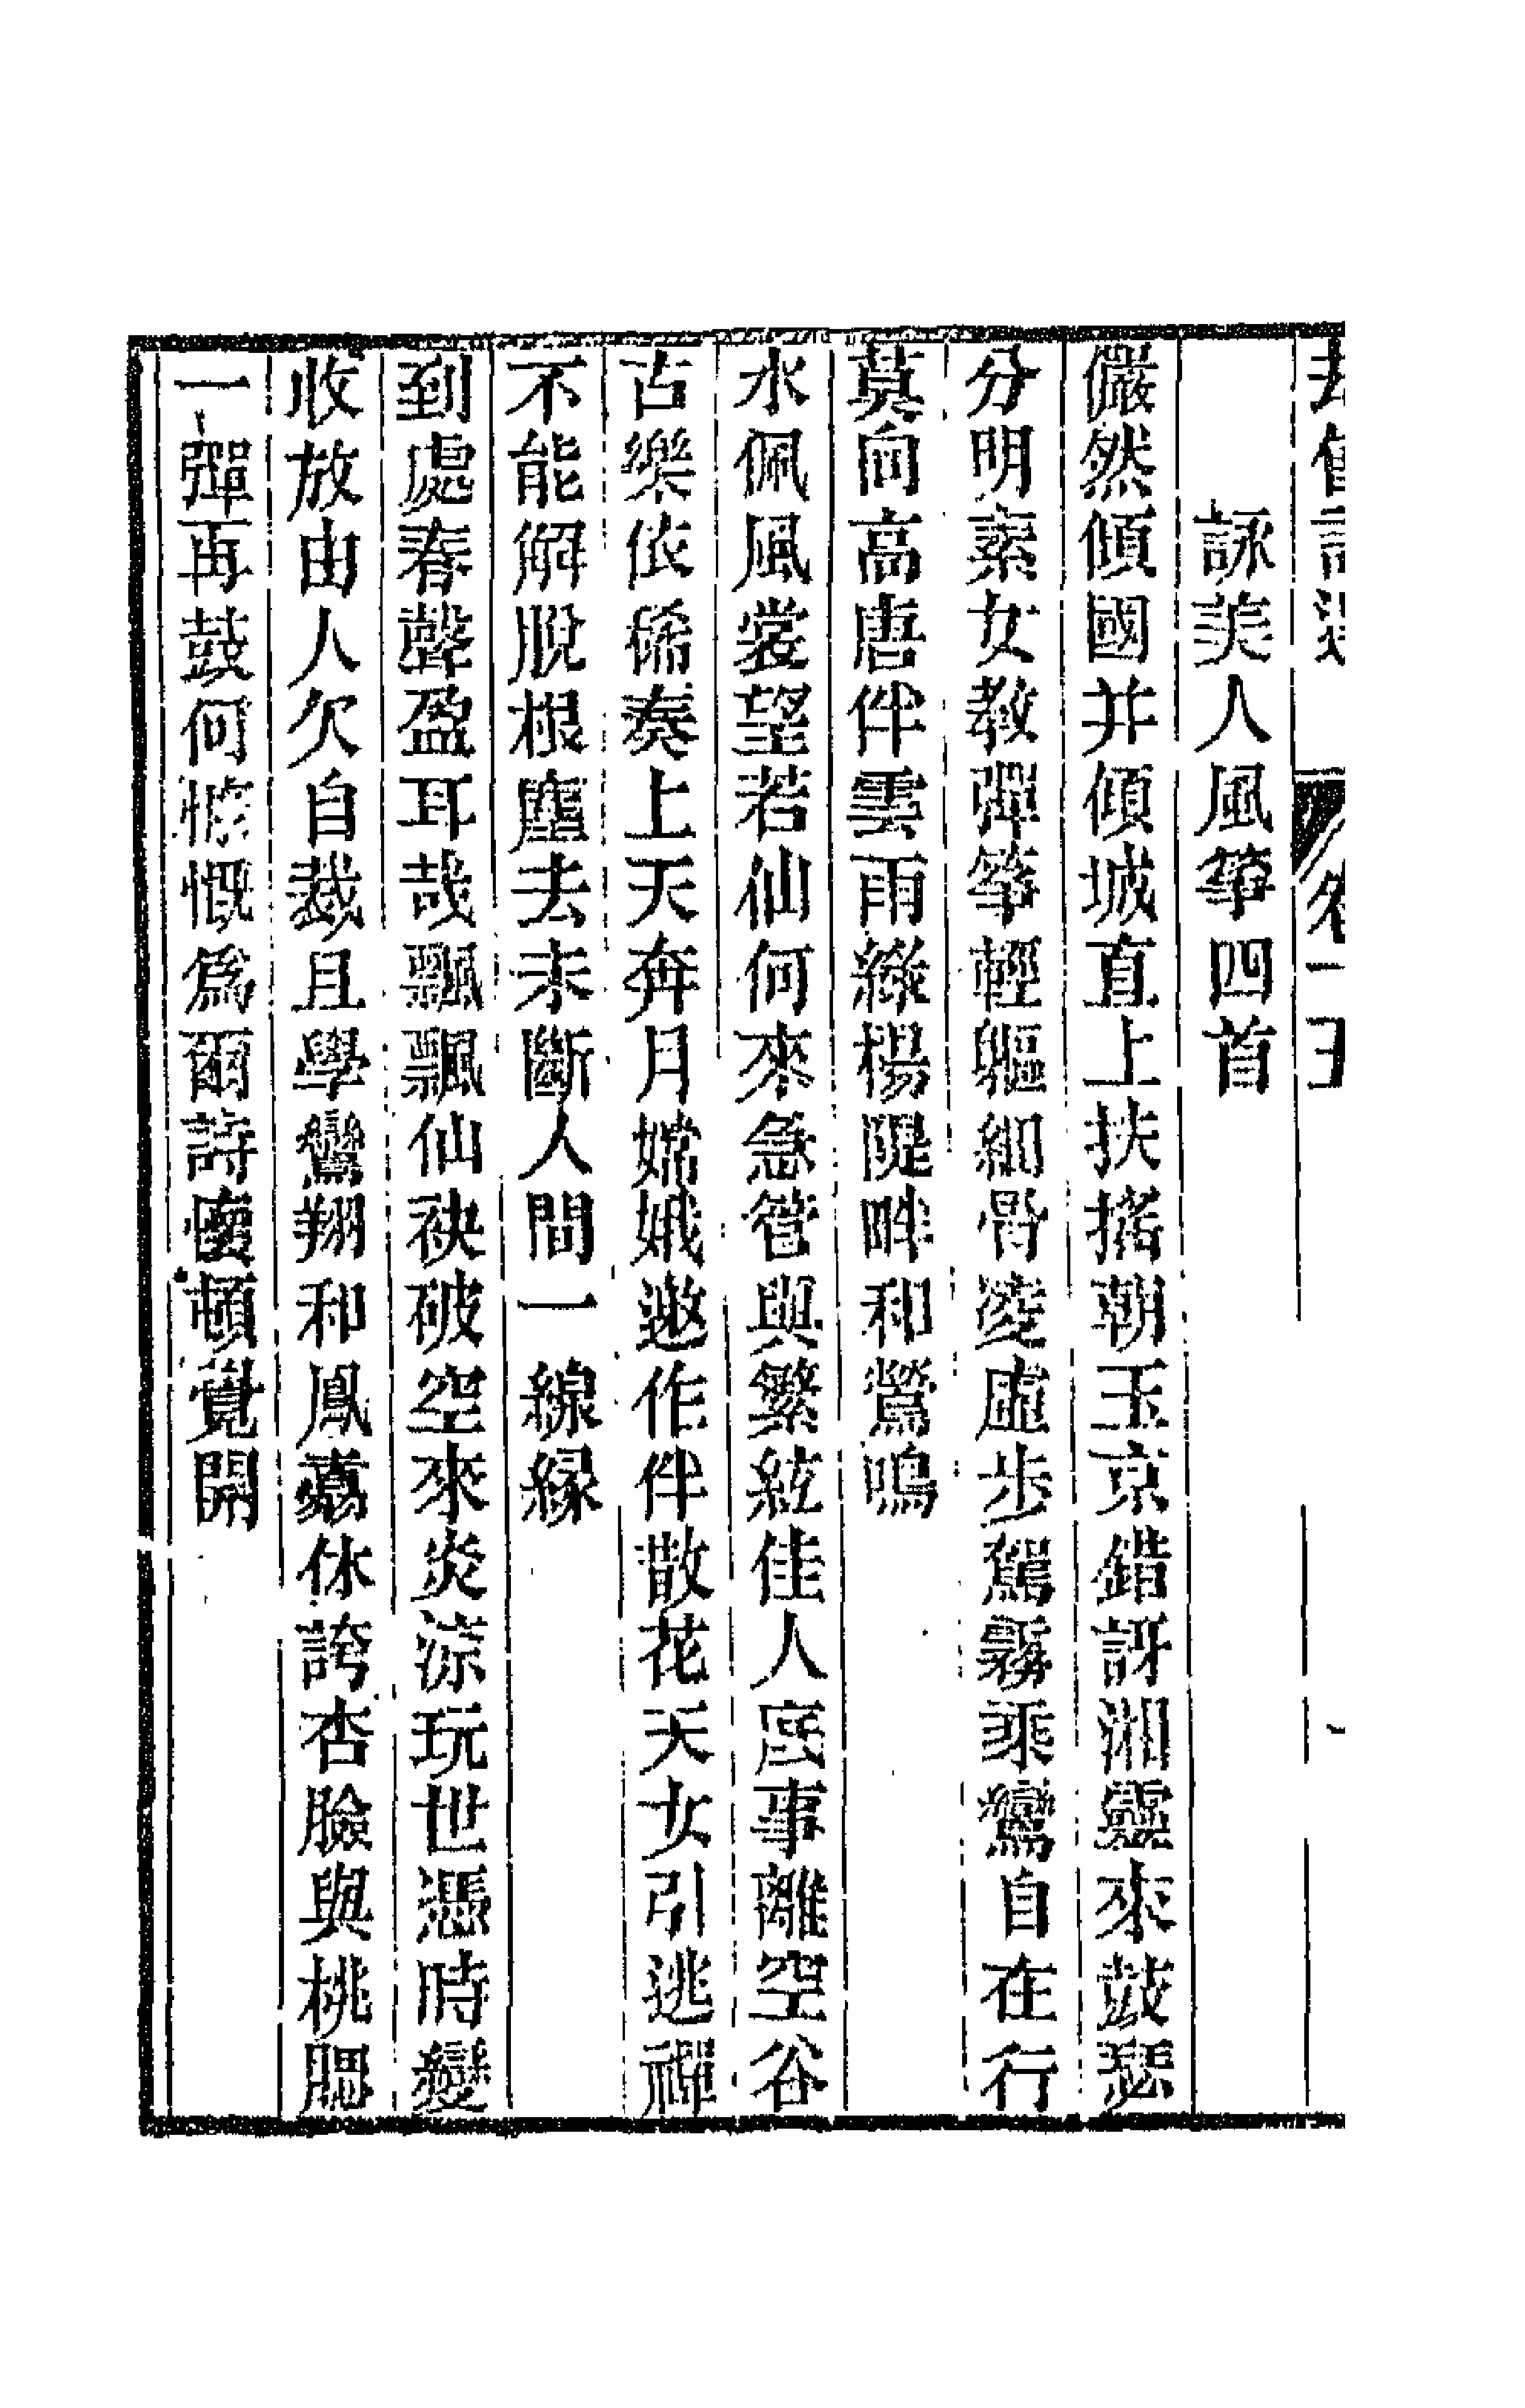 卷一五
詠美人風箏四首
儼然傾國并傾城直上扶搖朝玉京錯訝湘靈來鼓瑟
分明素女教彈箏輕軀細骨凌虛步駕霧乘鸞自在行
莫向高唐伴雲雨綠楊隄畔和鶯鳴
水佩風裳望若仙何來急管與繁絃佳人底事離空谷
古樂依稀奏上天奔月嫦娥邀作伴散花天女引逃禪
不能解脫根塵去未斷人間一線緣
到處春聲盈耳哉飄飄仙袂破空來炎涼玩世憑時變
收放由人欠自裁且學鸞翔和鳳翥休誇杏臉與桃腮
一彈再鼓何慷慨為爾詩懷頓覺開